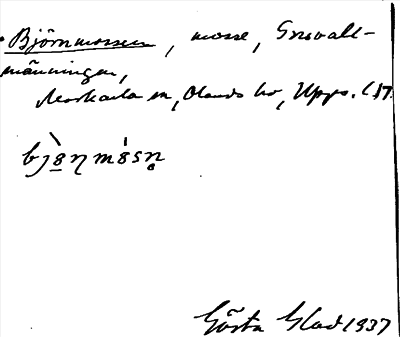 Björnmossen, mosse, Gnsvall-
männingen,
Morkarla sn, Olands hd, Upps. l
bjò̱̱ŋ mósn̥
Gösta Glad 1937